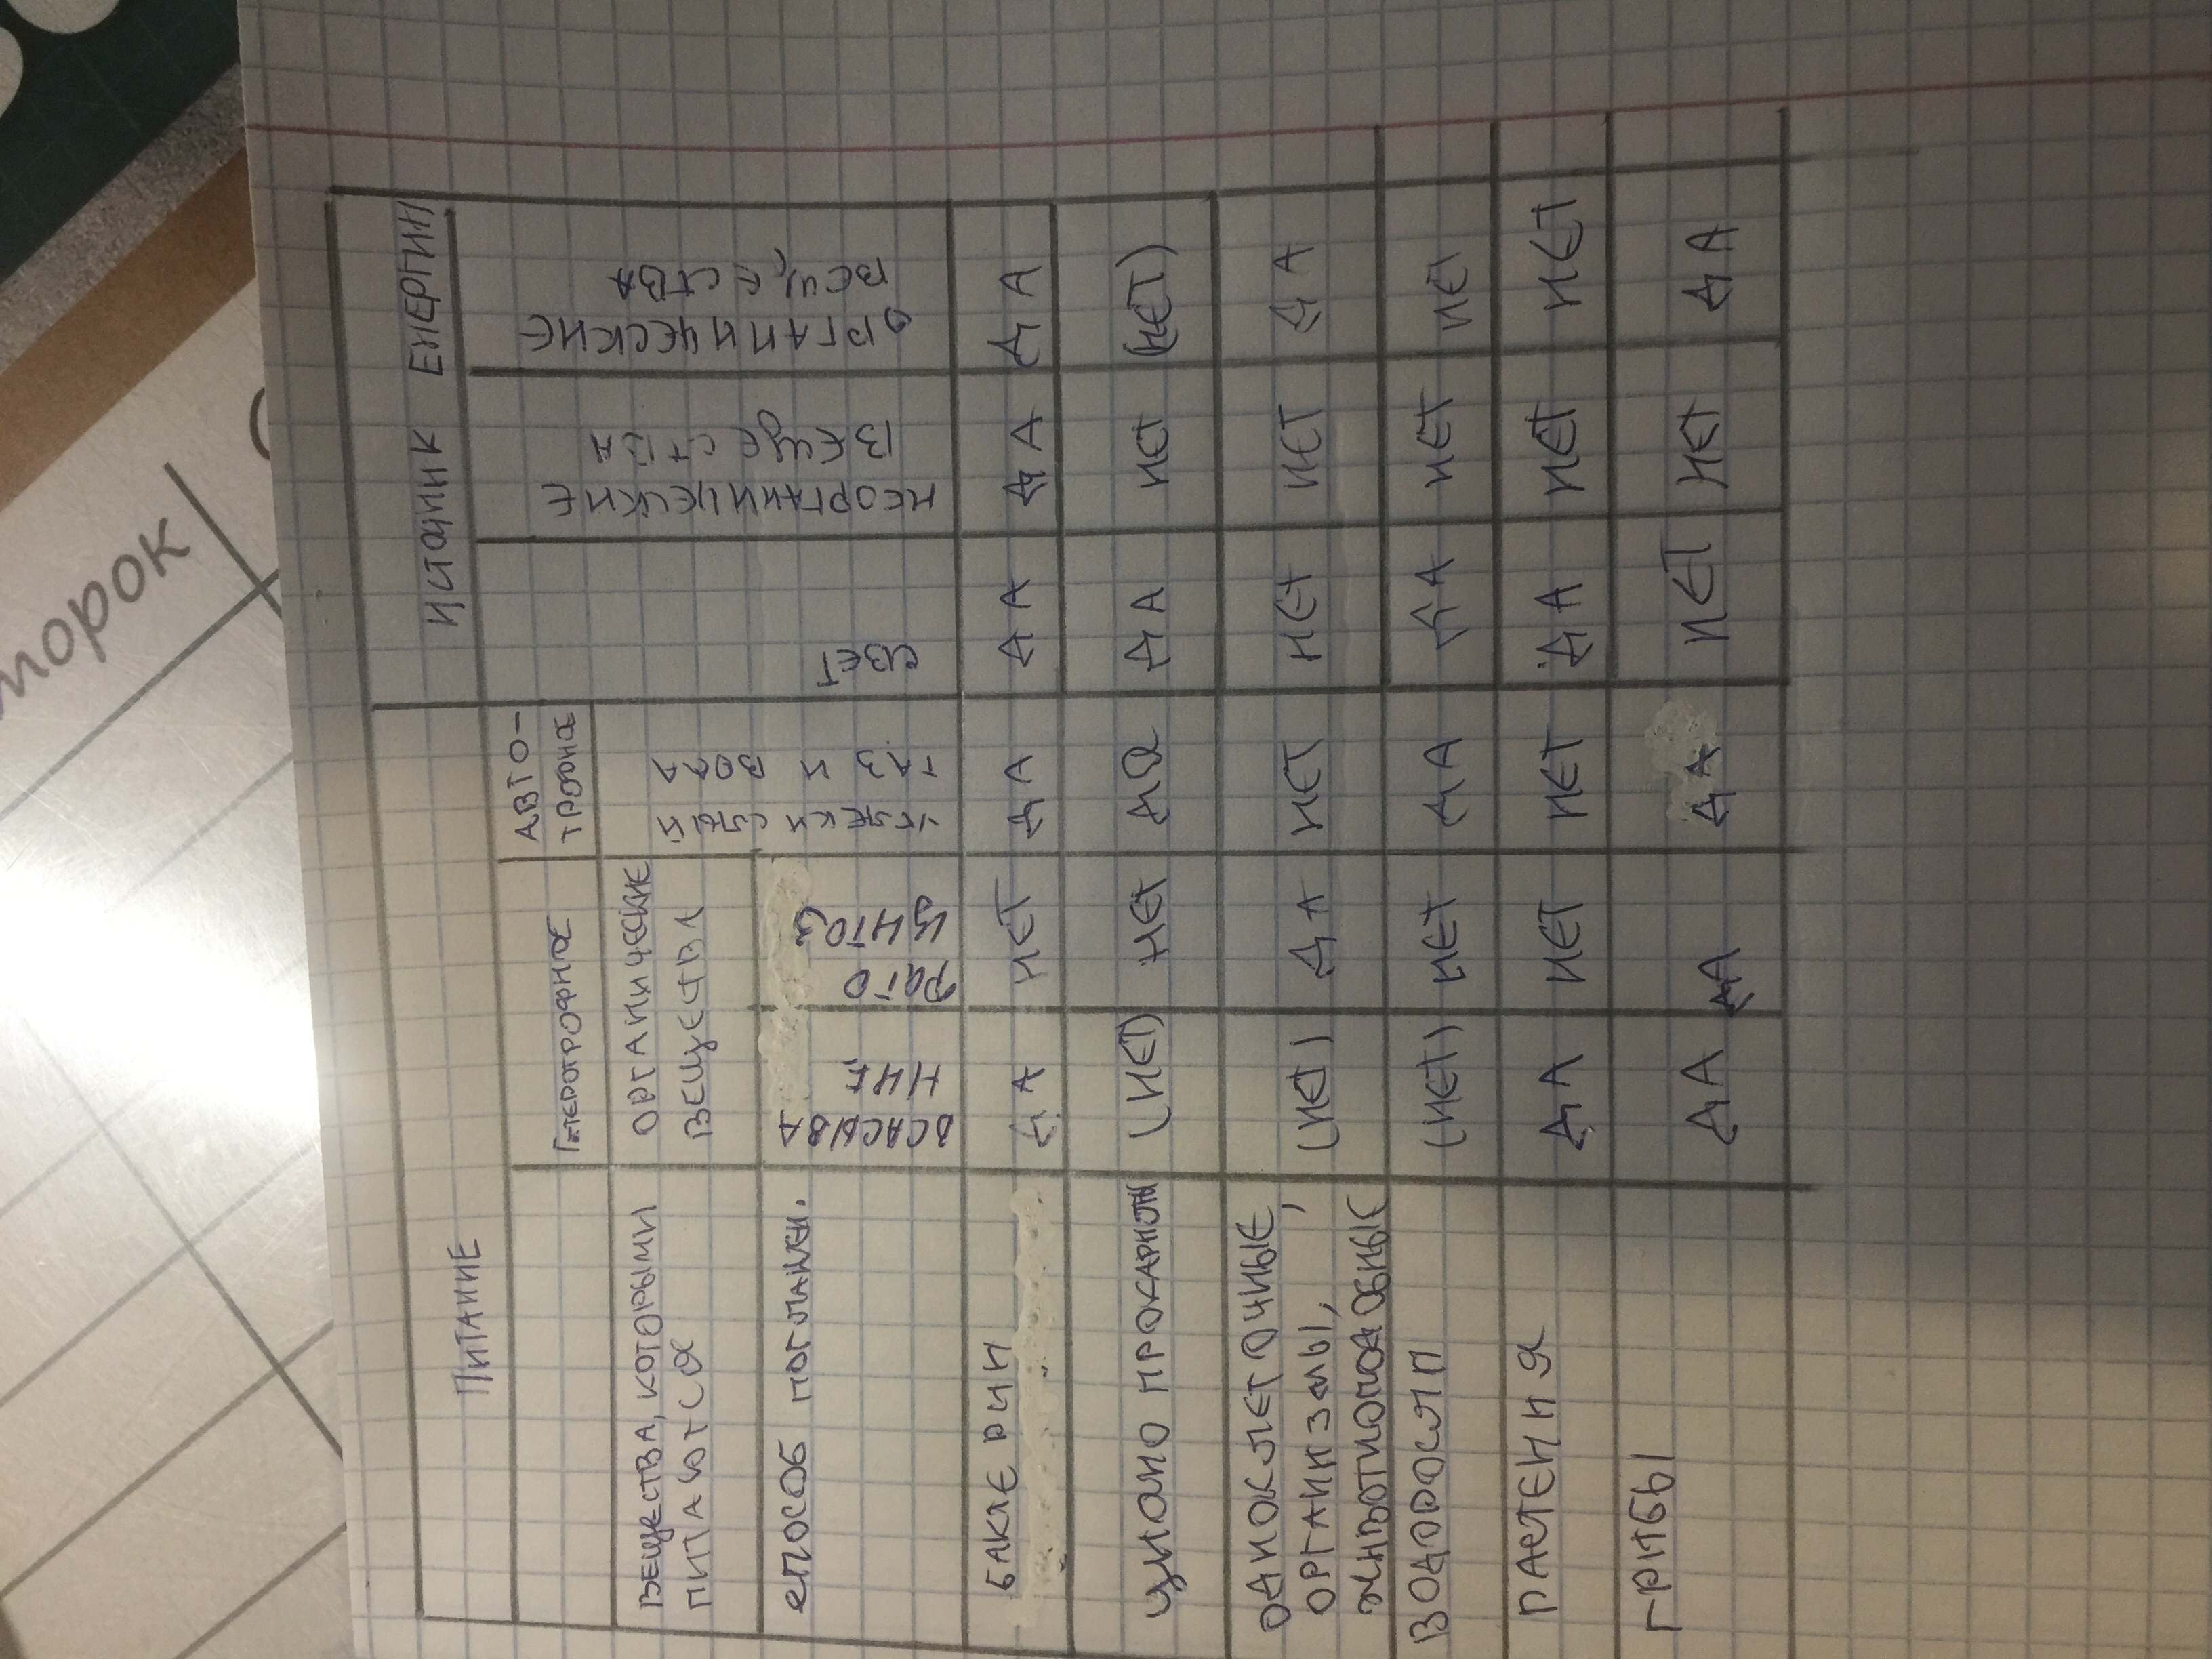 торок
Питание
Источник енергии
Гетеротрофное
Авто-
трофное
Вещества, которыми
питаются
органические
вещества
углеки
слый
газ и
вода
свет
неорганические
вещества
органические
вещества
способ поглащен.
всасыва
ние
фаго
цитоз
бактерии
да
нет
да
да
да
да
циано прокариоты
(нет)
нет
да
да
нет
(нет)
одноклеточные,
организмы,
животноподобные
(нет)
да
нет
нет
нет
да
водоросли
(нет)
нет
да
да
нет
нет
растения
да
нет
нет
да
нет
нет
грибы
да
да
да
нет
нет
да